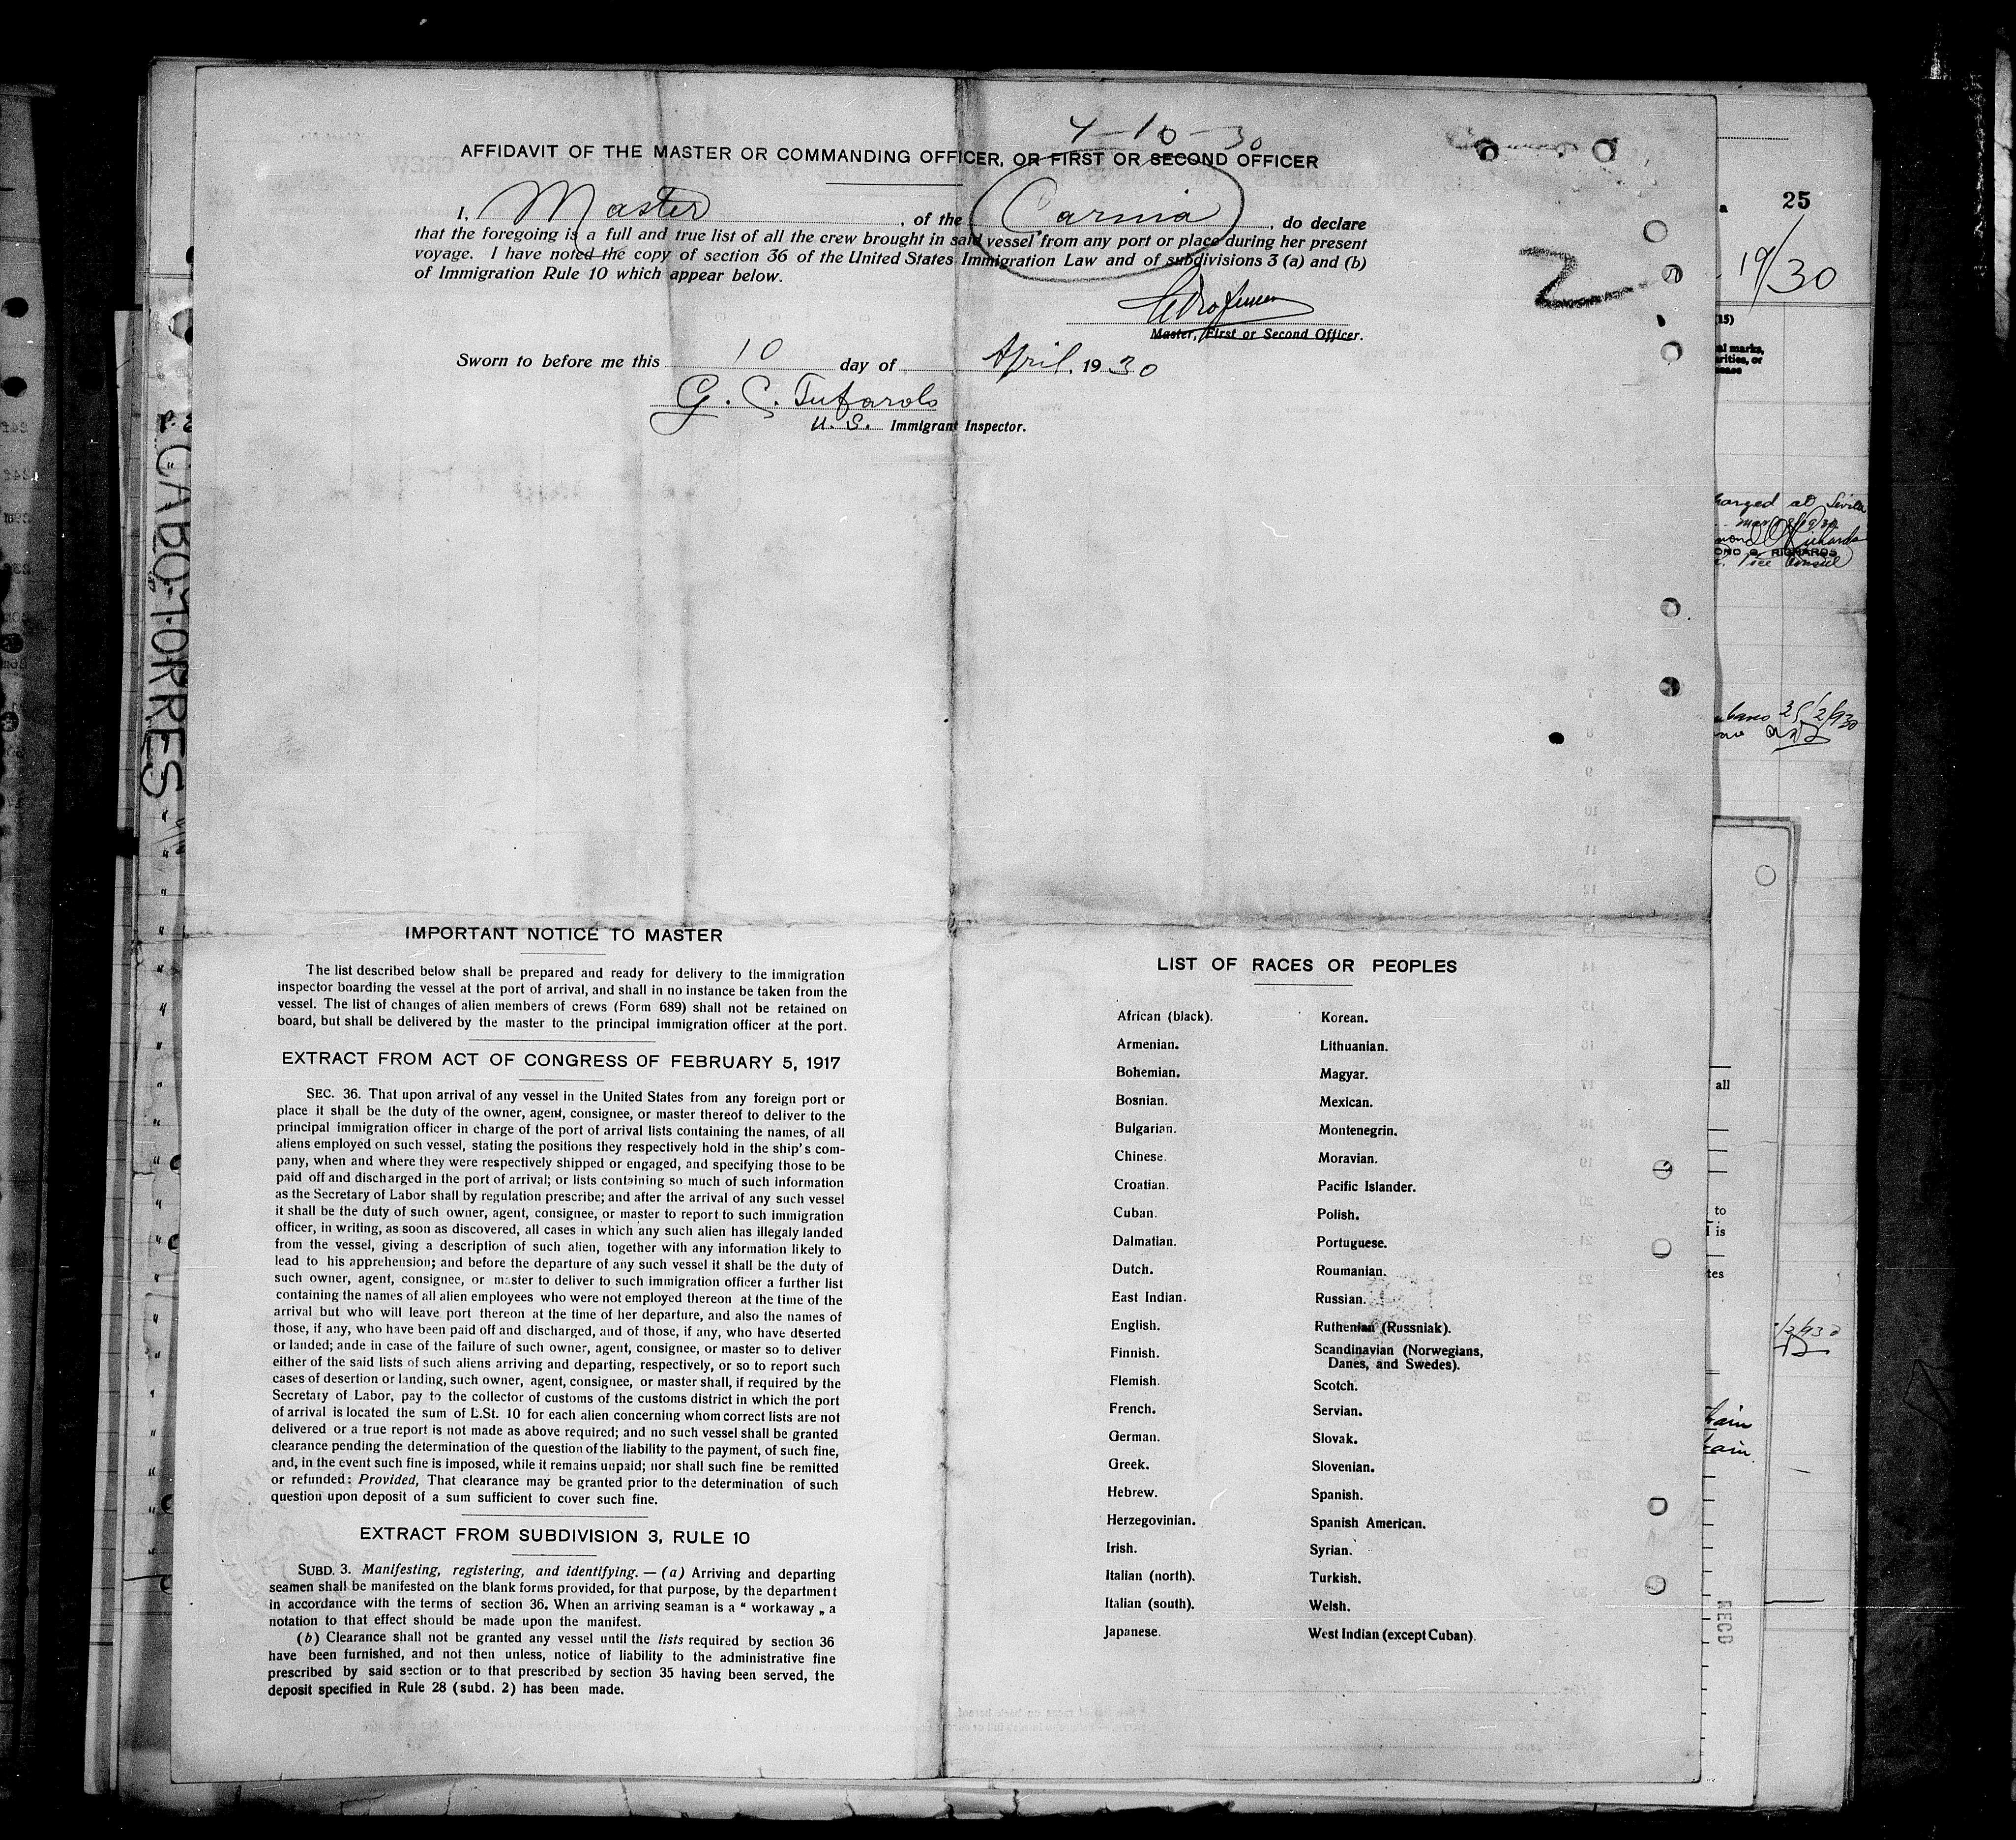 4-10-30
AFFIDAVIT OF THE MASTER OR COMMANDING OFFICER, OR FIRST OR SECOND OFFICER
I, Master, of the Carmia, do declare
that the foregoing is a full and true list of all the crew brought in said vessel from any port or place during her present
voyage. I have noted the copy of section 36 of the United States Immigration Law and of subdivisions 3 (a) and (b)
of Immigration Rule 10 which appear below.
2
Master, First or Second Officer.
Sworn to before me this 10 day of April, 1930
G. C. Tufarolo
U. S. Immigrant Inspector.
IMPORTANT NOTICE TO MASTER
The list described below shall be prepared and ready for delivery to the immigration
inspector boarding the vessel at the port of arrival, and shall in no instance be taken from the
vessel. The list of changes of alien members of crews (Form 689) shall not be retained on
board, but shall be delivered by the master to the principal immigration officer at the port.
EXTRACT FROM ACT OF CONGRESS OF FEBRUARY 5, 1917
SEC. 36. That upon arrival of any vessel in the United States from any foreign port or
place it shall be the duty of the owner, agent, consignee, or master thereof to deliver to the
principal immigration officer in charge of the port of arrival lists containing the names, of all
aliens employed on such vessel, stating the positions they respectively hold in the ship's com-
pany, when and where they were respectively shipped or engaged, and specifying those to be
paid off and discharged in the port of arrival; or lists containing so much of such information
as the Secretary of Labor shall by regulation prescribe; and after the arrival of any such vessel
it shall be the duty of such owner, agent, consignee, or master to report to such immigration
officer, in writing, as soon as discovered, all cases in which any such alien has illegaly landed
from the vessel, giving a description of such alien, together with any information likely to
lead to his apprehension; and before the departure of any such vessel it shall be the duty of
such owner, agent, consignee, or master to deliver to such immigration officer a further list
containing the names of all alien employees who were not employed thereon at the time of the
arrival but who will leave port thereon at the time of her departure, and also the names of
those, if any, who have been paid off and discharged, and of those, if any, who have deserted
or landed; ande in case of the failure of such owner, agent, consignee, or master so to deliver
either of the said lists of such aliens arriving and departing, respectively, or so to report such
cases of desertion or landing, such owner, agent, consignee, or master shall, if required by the
Secretary of Labor, pay to the collector of customs of the customs district in which the port
of arrival is located the sum of L.St. 10 for each alien concerning whom correct lists are not
delivered or a true report is not made as above required; and no such vessel shall be granted
clearance pending the determination of the question of the liability to the payment, of such fine,
and, in the event such fine is imposed, while it remains unpaid; nor shall such fine be remitted
or refunded: Provided, That clearance may be granted prior to the determination of such
question upon deposit of a sum sufficient to cover such fine.
EXTRACT FROM SUBDIVISION 3, RULE 10
SUBD. 3. Manifesting, registering, and identifying. — (a) Arriving and departing
seamen shall be manifested on the blank forms provided, for that purpose, by the department
in accordance with the terms of section 36. When an arriving seaman is a " workaway „ a
notation to that effect should be made upon the manifest.
(b) Clearance shall not be granted any vessel until the lists required by section 36
have been furnished, and not then unless, notice of liability to the administrative fine
prescribed by said section or to that prescribed by section 35 having been served, the
deposit specified in Rule 28 (subd. 2) has been made.
LIST OF RACES OR PEOPLES
African (black).
Armenian.
Bohemian.
Bosnian.
Bulgarian.
Chinese.
Croatian.
Cuban.
Dalmatian.
Dutch.
East Indian.
English.
Finnish.
Flemish.
French.
German.
Greek.
Hebrew.
Herzegovinian.
Irish.
Italian (north).
Italian (south).
Japanese.
Korean.
Lithuanian.
Magyar.
Mexican.
Montenegrin.
Moravian.
Pacific Islander.
Polish.
Portuguese.
Roumanian.
Russian.
Ruthenian (Russniak).
Scandinavian (Norwegians,
Danes, and Swedes).
Scotch.
Servian.
Slovak.
Slovenian.
Spanish.
Spanish American.
Syrian.
Turkish.
Welsh.
West Indian (except Cuban).
CABO-TORRES
25
19/30
(15)
RICHARDS
all
to
is
RECD